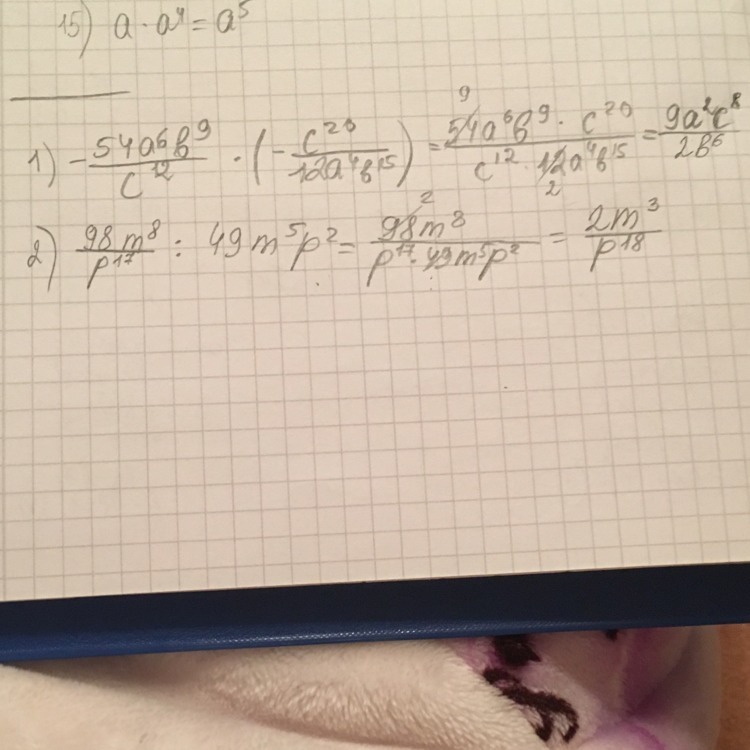 15) a · a⁴ = a⁵
1) -54a⁶b⁹/c¹² · (-c²⁰/12a⁴b¹⁵) = 54a⁶b⁹ · c²⁰/c¹² · 12a⁴b¹⁵ = 9a²c⁸/2b⁶
9
2
2) 98m⁸/p¹⁷ : 49m⁵p² = 98m⁸/p¹⁷ · 49m⁵p² = 2m³/p¹⁸
2